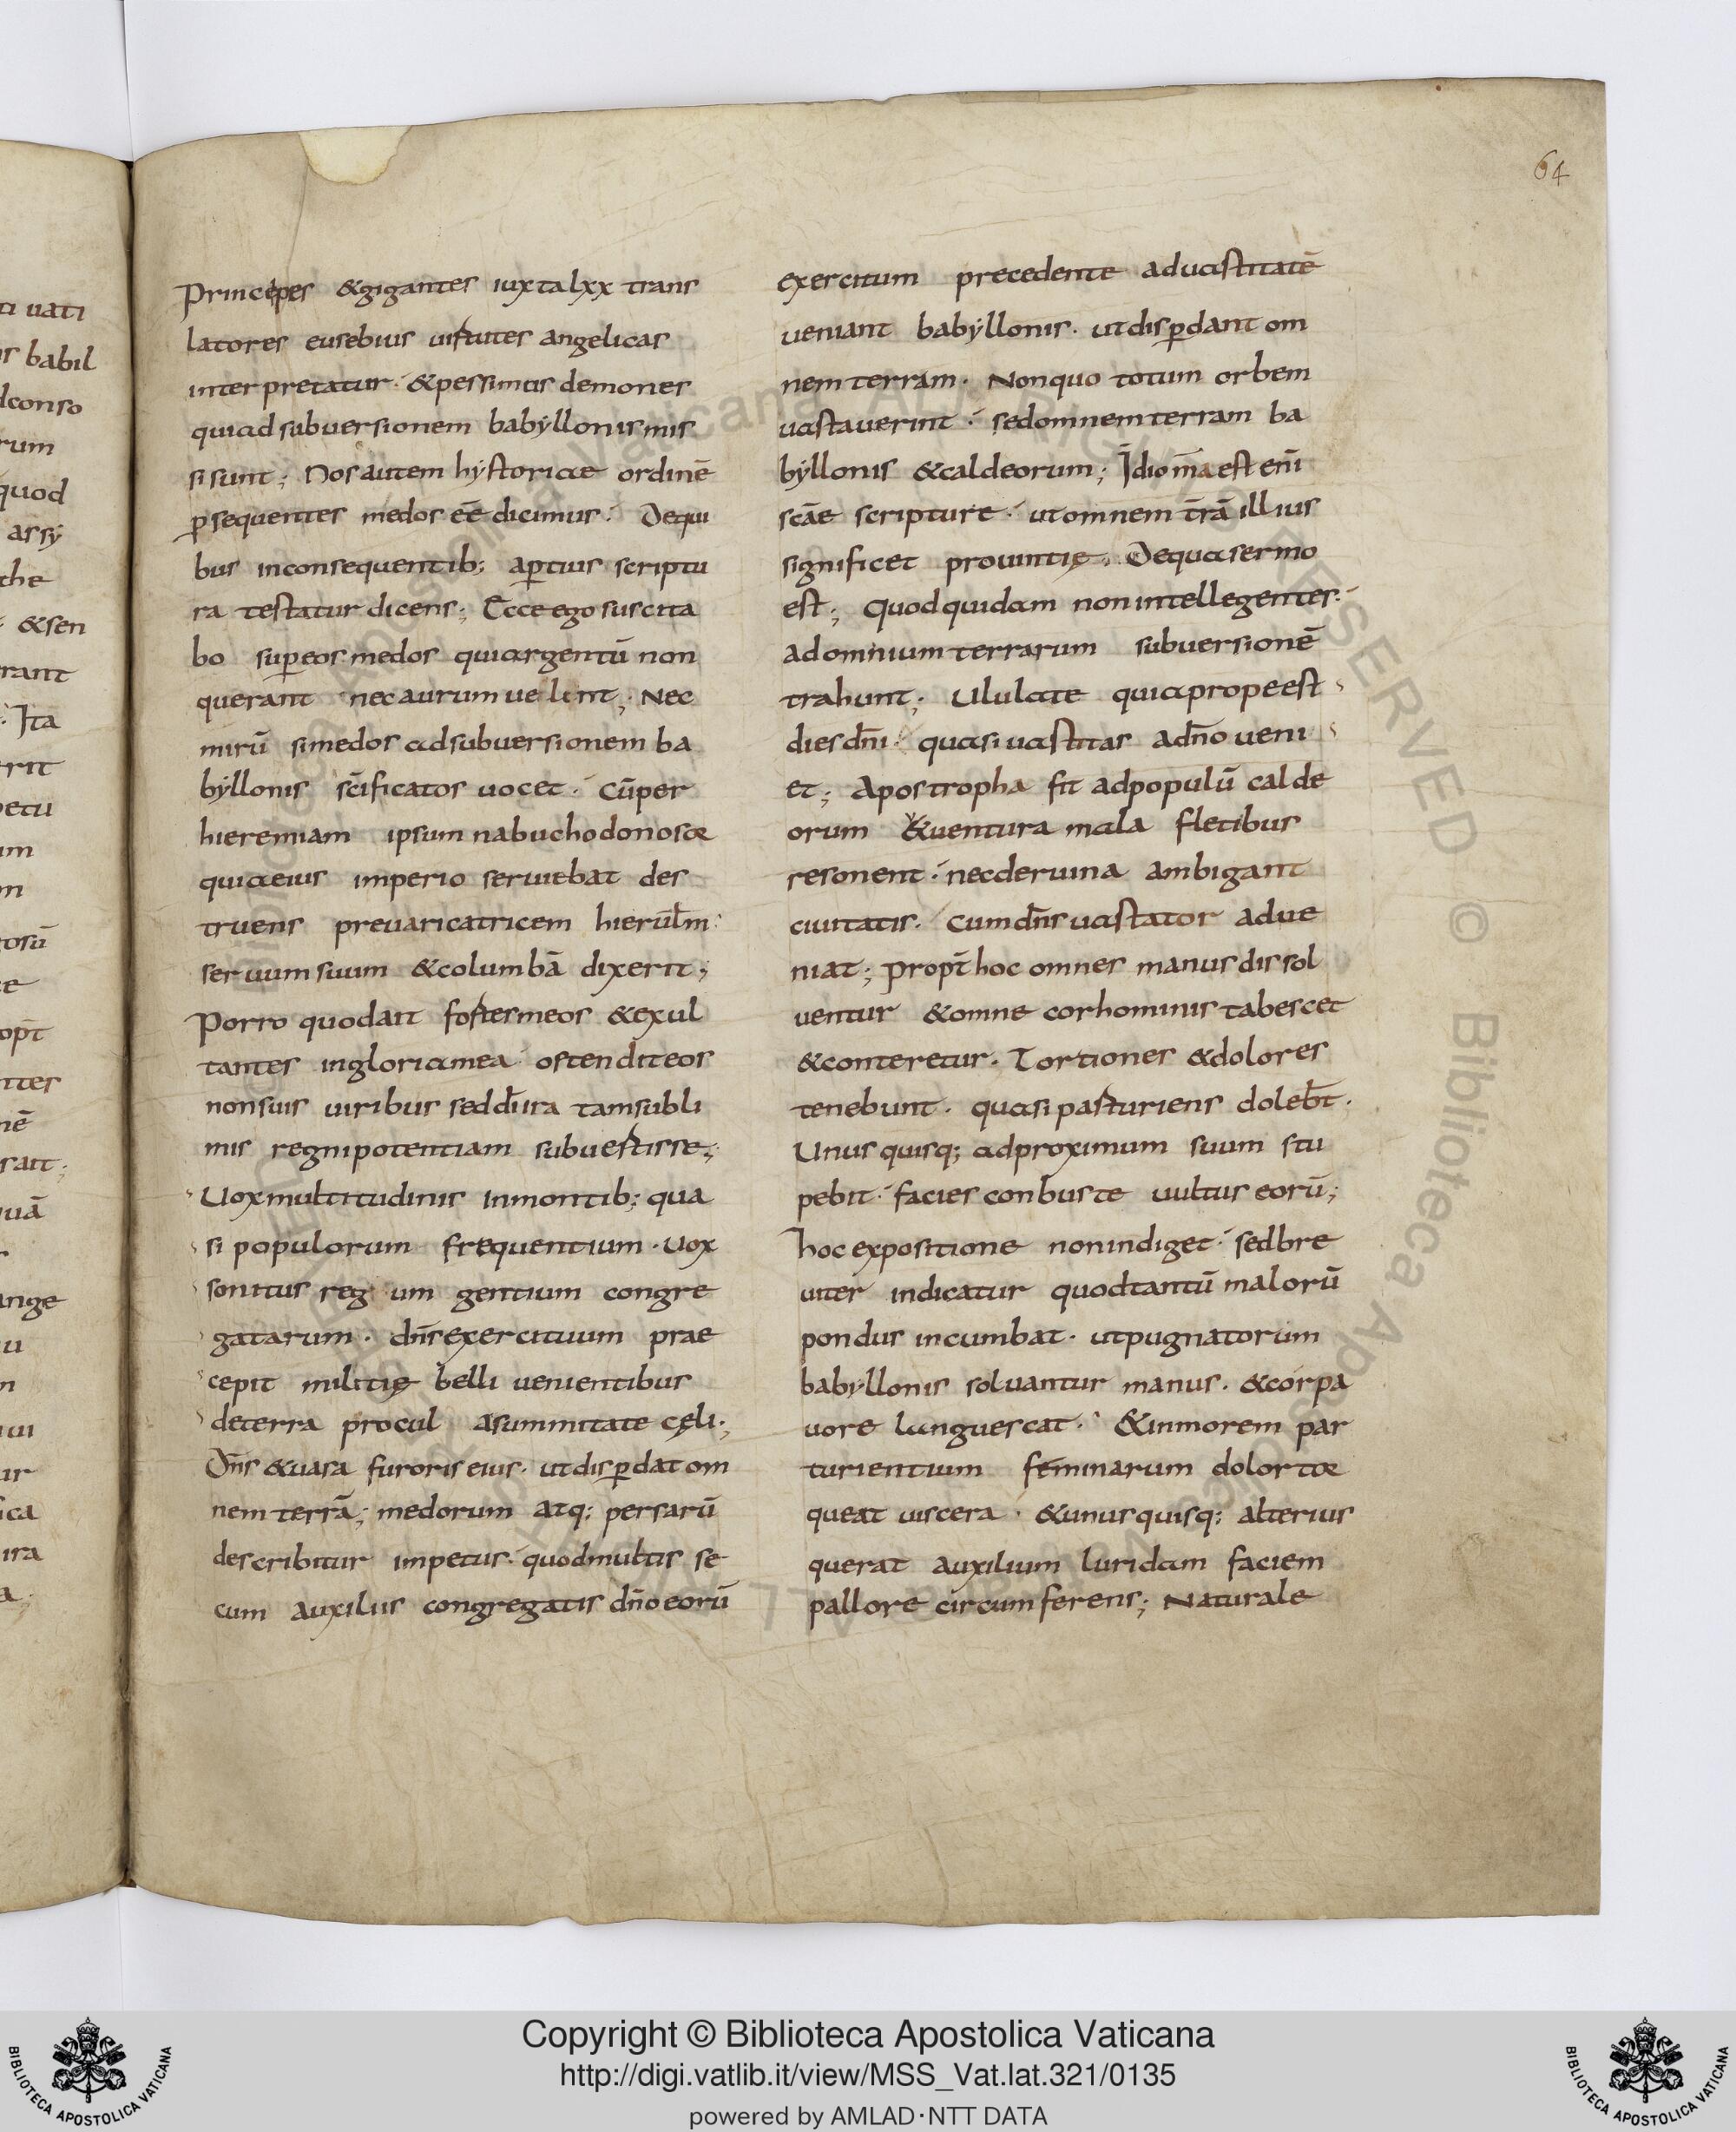 64
Principes & gigantes iuxta lxx trans
latores eusebius uirtutes angelicas
interpretatur · & pessimus demones
qui ad subuersionem babyllonis mis
si sunt; Nos autem hystoriae ordinē
p̱sequentes medos eē dicimus · De qui
bus in consequentib; ap̱tius scriptu
ra testatur dicens; Ecce ego suscita
bo sup̱eos medos qui argentū non
querant nec aurum uelint; Nec
mirū si medos ad subuersionem ba
byllonis sc̄ificatos uocet · Cū per
hieremiam ipsum nabuchodonosor
quia eius imperio seruiebat des
truens preuaricatricem hierusl̄m ·
seruum suum & columbā dixerit;
Porro quod ait fortes meos & exul
tantes in gloria mea ostendit eos
non suis uiribus sed dī ira tam subli
mis regni potentiam subuertisse;
Uox multitudinis in montib; qua
si populorum frequentium · Uox
sonitus reg um gentium congre
gatarum · dn̄s exercituum prae
cepit militię belli uenientibus
de terra procul a summitate cęli;
Dn̄s & uasa furoris eius · ut disp̱dat om
nem terrā; medorum atq; persarū
describitur impetus · quod multis se
cum auxiliis congregatis dn̄o eorū
exercitum precedente ad uastitatē
ueniant babyllonis · ut disp̱dant om
nem terram · Non quo totum orbem
uastauerint · sed omnem terram ba
byllonis & caldeorum; Idioma est eni̅
sc̄ae scripture · ut omnem tr̄ā illius
significet prouintię · De qua sermo
est; Quod quidam non intellegentes ·
ad omnium terrarum subuersionē
trahunt; Ululate quia prope est
dies dn̄i · quasi uastitas a dn̄o ueni
et; Apostropha fit ad populū calde
orum & uentura mala fletibus
resonent · nec de ruina ambigant
ciuitatis · Cum dn̄s uastator adue
niat; Propt̄ hoc omnes manus dissol
uentur & omne cor hominis tabescet
& conteretur · Tortiones & dolores
tenebunt · quasi parturiens doleb̄t ·
Unusquisq; ad proximum suum stu
pebit · facies conbuste uultus eorū;
hoc expositione non indiget · sed bre
uiter indicatur quod tantū malorū
pondus incumbat · ut pugnatorum
babyllonis soluantur manus · & cor pa
uore languescat · & in morem par
turientium feminarum dolor tor
queat uiscera · & unusquisq; alterius
querat auxilium luridam faciem
pallore circumferens; Naturale
Copyright © Biblioteca Apostolica Vaticana
http://digi.vatlib.it/view/MSS_Vat.lat.321/0135
powered by AMLAD·NTT DATA
BIBLIOTECA APOSTOLICA VATICANA
BIBLIOTECA APOSTOLICA VATICANA